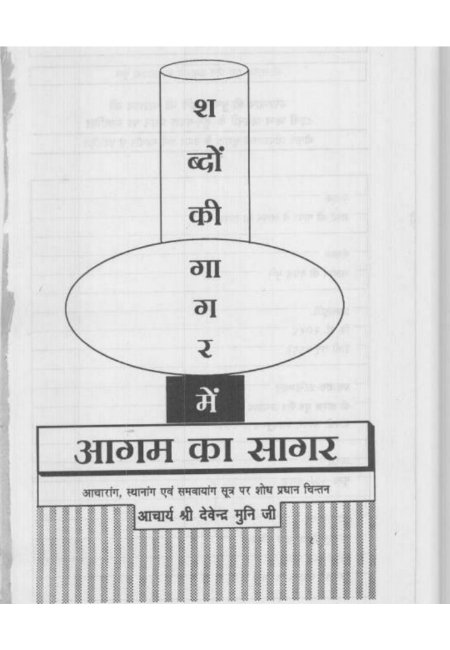 श
ब्दों
की
गा
ग
र
में
आगम का सागर
आचारांग, स्थानांग एवं समवायांग सूत्र पर शोध प्रधान चिन्तन
आचार्य श्री देवेन्द्र मुनि जी